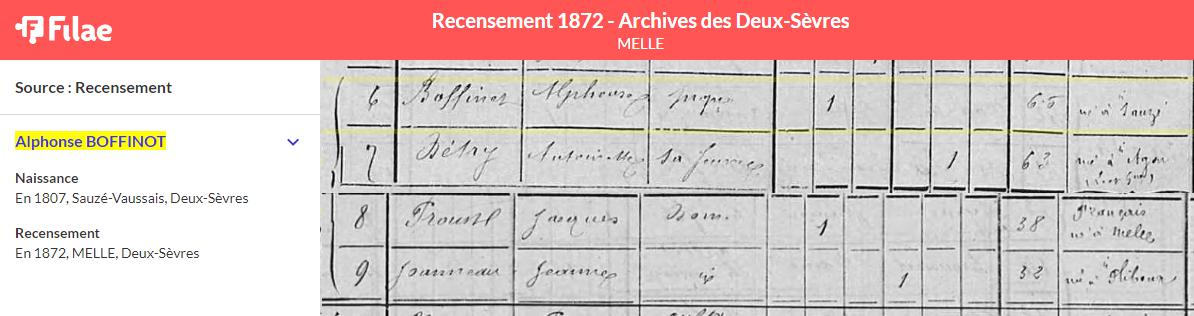 Filae
Recensement 1872 - Archives des Deux-Sèvres
MELLE
Source : Recensement
Alphonse BOFFINOT
Naissance
En 1807, Sauzé-Vaussais, Deux-Sèvres
Recensement
En 1872, MELLE, Deux-Sèvres
6 Boffinot Alphonse juge 1 65 né à Sauzé
7 Bétry Antoinette sa femme 1 63
8 Proust Jacques Dom. 1 38 Français né à Melle
9 Jeanneau Jeanne id 1 32